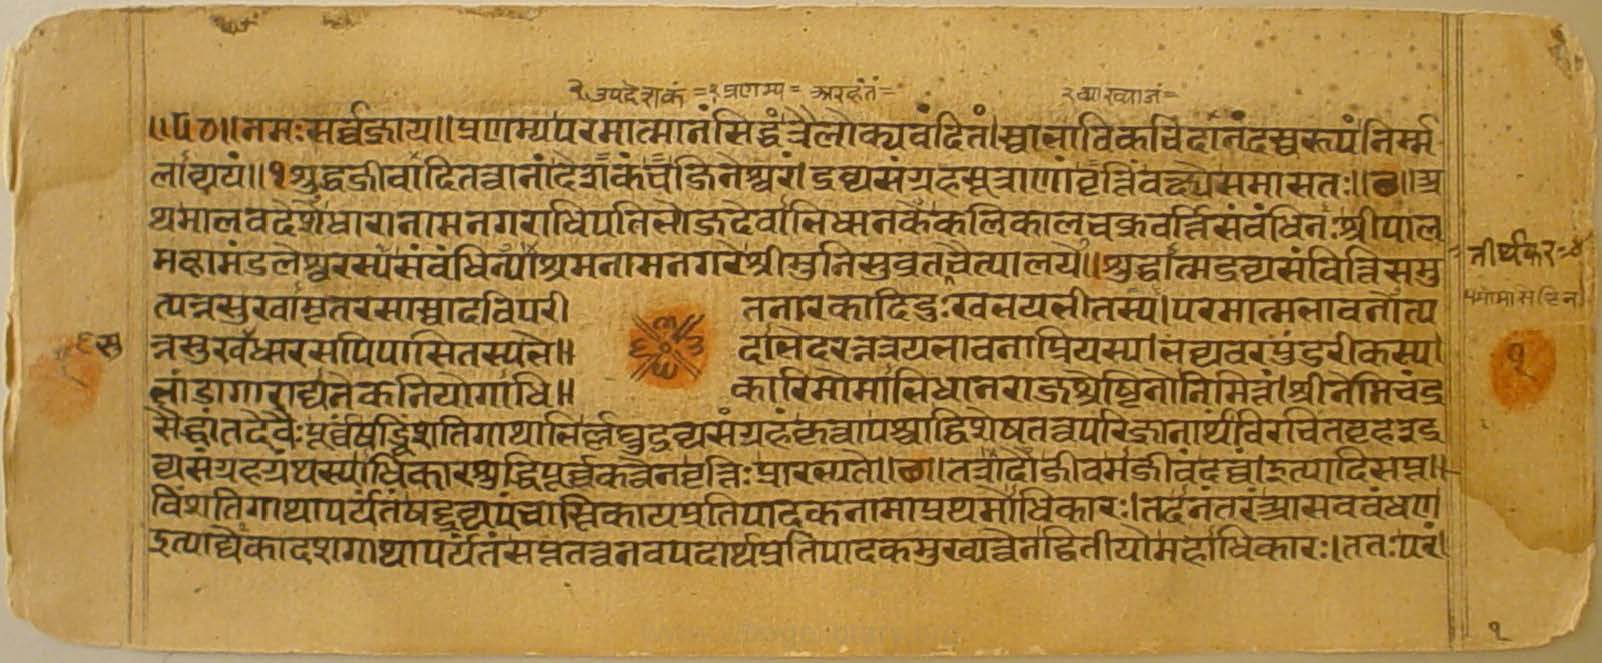 २ उपदेशकं = १ प्रणम्य = अरहंतं = २ व्याख्यानं =
॥ नमः सर्व्वज्ञाय॥ प्रणम्य परमात्मानं सिद्धं त्रैलोक्यवंदितं। स्वाभाविकचिदानंदस्वरूपं निर्म्म
लाव्ययं॥१ शुद्धजीवादितत्वानां देशकं च जिनेश्वरं। द्रव्यसंग्रहसूत्राणां वृत्तिं वक्ष्ये समासतः॥छ॥ अ
थ मालवदेशे धारानामनगराधिपतिभोजदेवाभिधानकलिकालचक्रवर्त्तिसंबंधिनः श्रीपाल
महामंडलेश्वरस्य संबंधिन्याश्रमनामनगरे श्रीमुनिसुव्रतचैत्यालये॥ शुद्धात्मद्रव्यसंवित्तिसमु
त्पन्नसुखामृतरसास्वादविपरी तनारकादिदुःखभयभीतस्य। परमात्मभावनोत्प
न्नसुखसुधारसपिपासितस्य भे॥ दाभेदरत्नत्रयभावनाप्रियस्य। भव्यवरपुंडरीकस्य।
भांडागाराद्यनेकनियोगाधि॥ कारिसोमाभिधानराजश्रेष्ठिनो निमित्तं। श्रीनेमिचंद्र
सैद्धांतदेवैः पूर्वं षड्विंशतिगाथाभिर्लघुद्रव्यसंग्रहं कृत्वा पश्चाद्विशेषतत्वपरिज्ञानार्थं विरचितबृहद्द्र
व्यसंग्रहग्रंथस्याधिकारशुद्धिपूर्वकत्वेन वृत्तिः प्रारभ्यते॥छ॥ तत्रादौ जीवमजीवं दव्वं। इत्यादिसप्त॥
विंशतिगाथापर्यंतं षड्द्रव्यपंचास्तिकायप्रतिपादकनामा प्रथमोधिकारः। तदनंतरं आसवबंधण
इत्याद्येकादशगाथापर्यंतं सप्ततत्वनवपदार्थप्रतिपादकमुख्यत्वेन द्वितीयो महाधिकारः। ततः परं।
तीर्थकर = ४
१
१